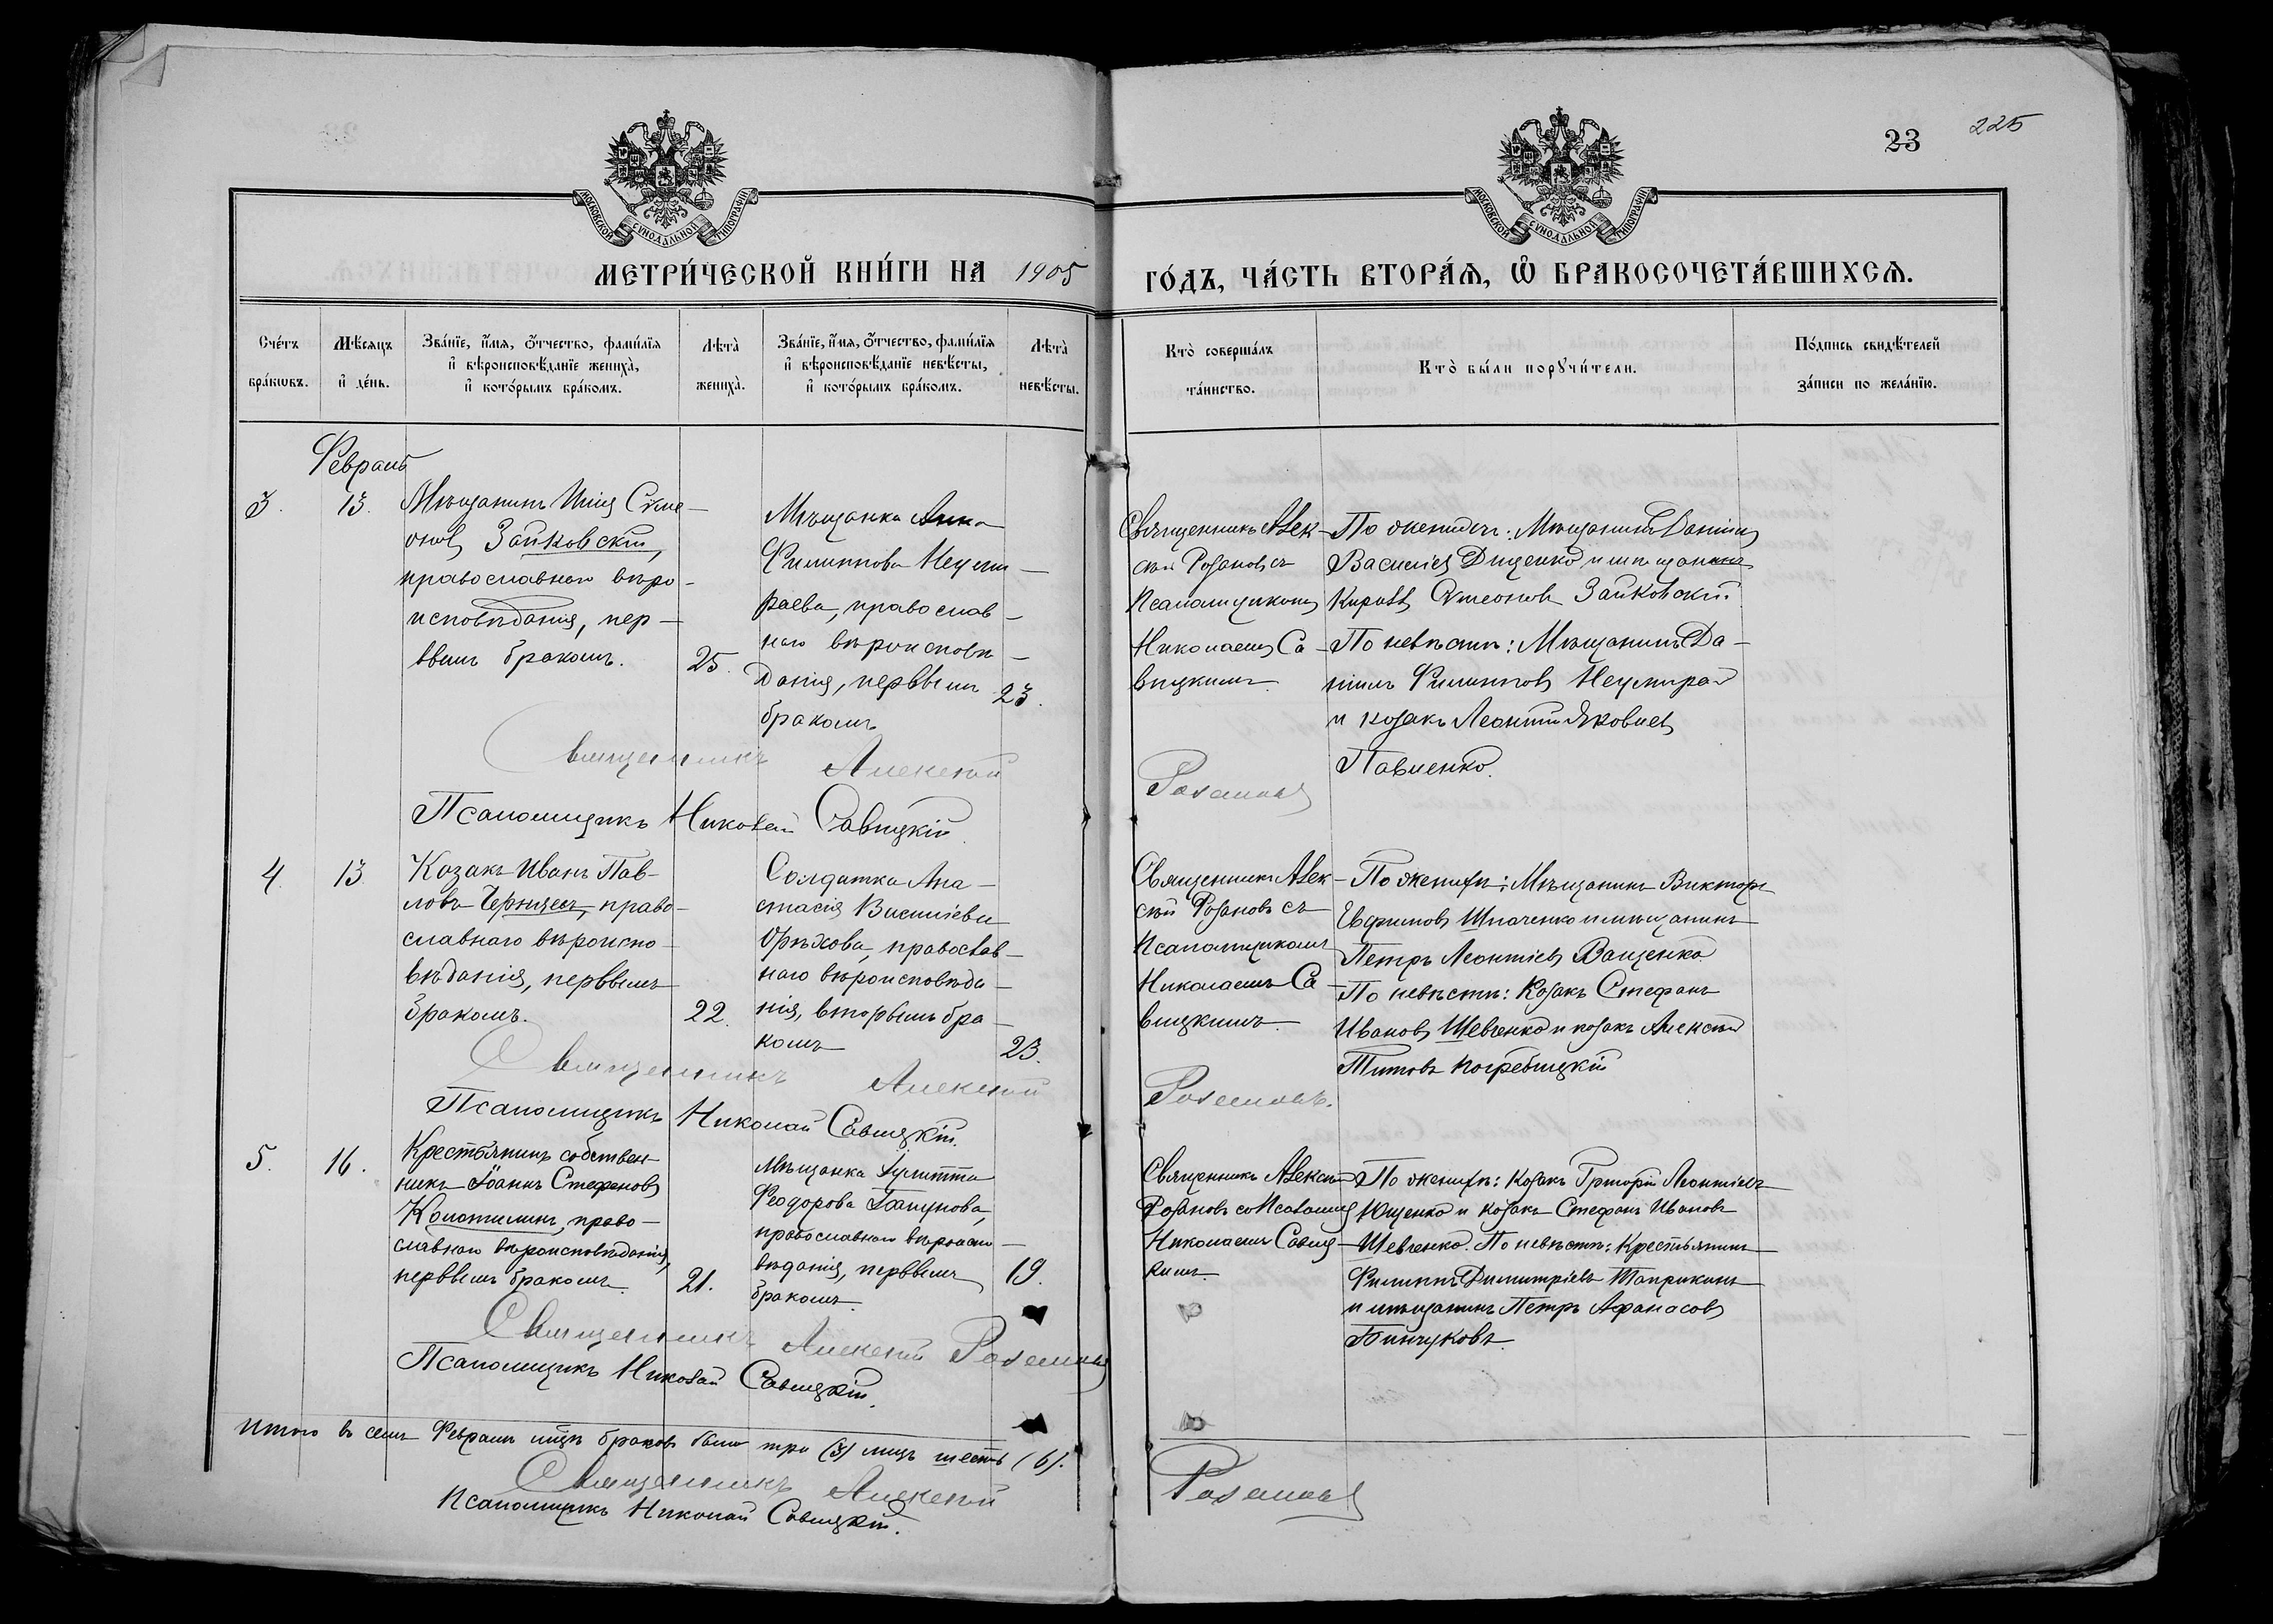 23 225
МОСКОВСКОЙ СѴНОДАЛЬНОЙ ТИПОГРАФІИ
МОСКОВСКОЙ СѴНОДАЛЬНОЙ ТИПОГРАФІИ
МЕТРИ́ЧЕСКОЙ КНИ́ГИ НА 1905 ГО́ДЪ, ЧА́СТЬ ВТОРА́Ѧ, Ѽ БРАКОСОЧЕТА́ВШИХСѦ.
Сче́тъ бра́кѡвъ.
Мѣ́сяцъ и҆ де́нь.
Зва́нїе, и҆́мя, ѻ҆́тчество, фами́лїя
и҆ вѣроисповѣ́данїе жениха̀,
и҆ кото́рымъ бра́комъ.
Лѣта̀ жениха̀.
Зва́нїе, и҆́мя, ѻ҆́тчество, фами́лїя
и҆ вѣроисповѣ́данїе невѣ́сты,
и҆ кото́рымъ бра́комъ.
Лѣта̀ невѣ́сты.
Кто̀ соверша́лъ
та́инство.
Кто̀ бы́ли порꙋчи́тели.
По́дпись свидѣ́телей
за́писи по жела́нїю.
Февраль
3. 13.
Мѣщанинъ Илія Сѵме-
оновъ Зайковскій,
православнаго вѣро-
исповѣданія, пер-
вымъ бракомъ. 25.
Мѣщанка Анна
Филиппова Неуми-
раева, православ-
наго вѣроисповѣ-
данія, первымъ 23.
бракомъ
Священникъ Алек-
сѣй Розановъ съ
Псаломщикомъ
Николаемъ Са-
вицкимъ.
По женихѣ: Мѣщанинъ Даніилъ
Василіевъ Диценко и мѣщанинъ
Кириллъ Сѵмеоновъ Зайковскій
По невѣстѣ: Мѣщанинъ Да-
ніилъ Филипповъ Неумирай
и козакъ Леонтій Яковлевъ
Павленко.
Священникъ Алексѣй Розановъ
Псаломщикъ Николай Савицкій.
4. 13
Козакъ Иванъ Пав-
ловъ Чернцесъ, право-
славнаго вѣроиспо-
вѣданія, первымъ
бракомъ. 22.
Солдатка Ана-
стасія Василіева
Орѣхова, православ-
наго вѣроисповѣда-
нія, вторымъ бра-
комъ 23.
Священникъ Алек-
сѣй Розановъ съ
Псаломщикомъ
Николаемъ Са-
вицкимъ.
По женихѣ: Мѣщанинъ Викторъ
Евфимовъ Шпаченко и мѣщанинъ
Петръ Леонтіевъ Ващенко
По невѣстѣ: Козакъ Стефанъ
Ивановъ Шевченко и козакъ Алексѣй
Титовъ Погребицкій
Священникъ Алексѣй Розановъ.
Псаломщикъ Николай Савицкій.
5. 16.
Крестьянинъ собствен-
никъ Іоаннъ Стефановъ
Колотилинъ, право-
славнаго вѣроисповѣданія,
первымъ бракомъ. 21.
Мѣщанка Іулитта
Феодорова Гапунова,
православнаго вѣроиспо-
вѣданія, первымъ 19.
бракомъ.
Священникъ Алексѣй
Розановъ со Псаломщ
Николаемъ Савиц-
кимъ.
По женихѣ: Козакъ Григорій Леонтіевъ
Ющенко и козакъ Стефанъ Ивановъ
Шевченко. По невѣстѣ: Крестьянинъ
Филиппъ Димитріевъ Тапрыкинъ
и мѣщанинъ Петръ Афанасовъ
Бинчуковъ.
Священникъ Алексѣй Розановъ
Псаломщикъ Николай Савицкій.
Итого въ семъ Февралѣ мцѣ браковъ было три (3) лицъ шесть (6).
Священникъ Алексѣй Розановъ
Псаломщикъ Николай Савицкій.